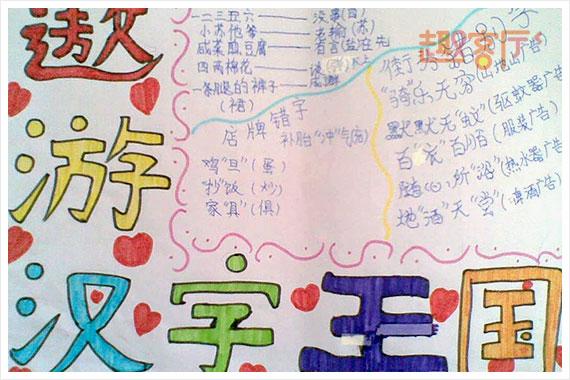 遨
游
汉字王国
一二三五六——没事(四)
小苏他爷——老输(苏)
咸菜煎豆腐——有言(盐)在先
四两棉花——谈
一条腿的裤子——
(裙)
店牌错字
补胎“冲”气(充)
鸡“旦”(蛋)
抄“饭”(炒)
家“具”(俱)
街
“骑”乐无穷(山地山广告)
默默无“蚊”(驱蚊器广告)
百“衣”百顺(服装广告)
随心所“浴”(热水器广告)
地“酒”天“堂”(酒广告)
趣客厅